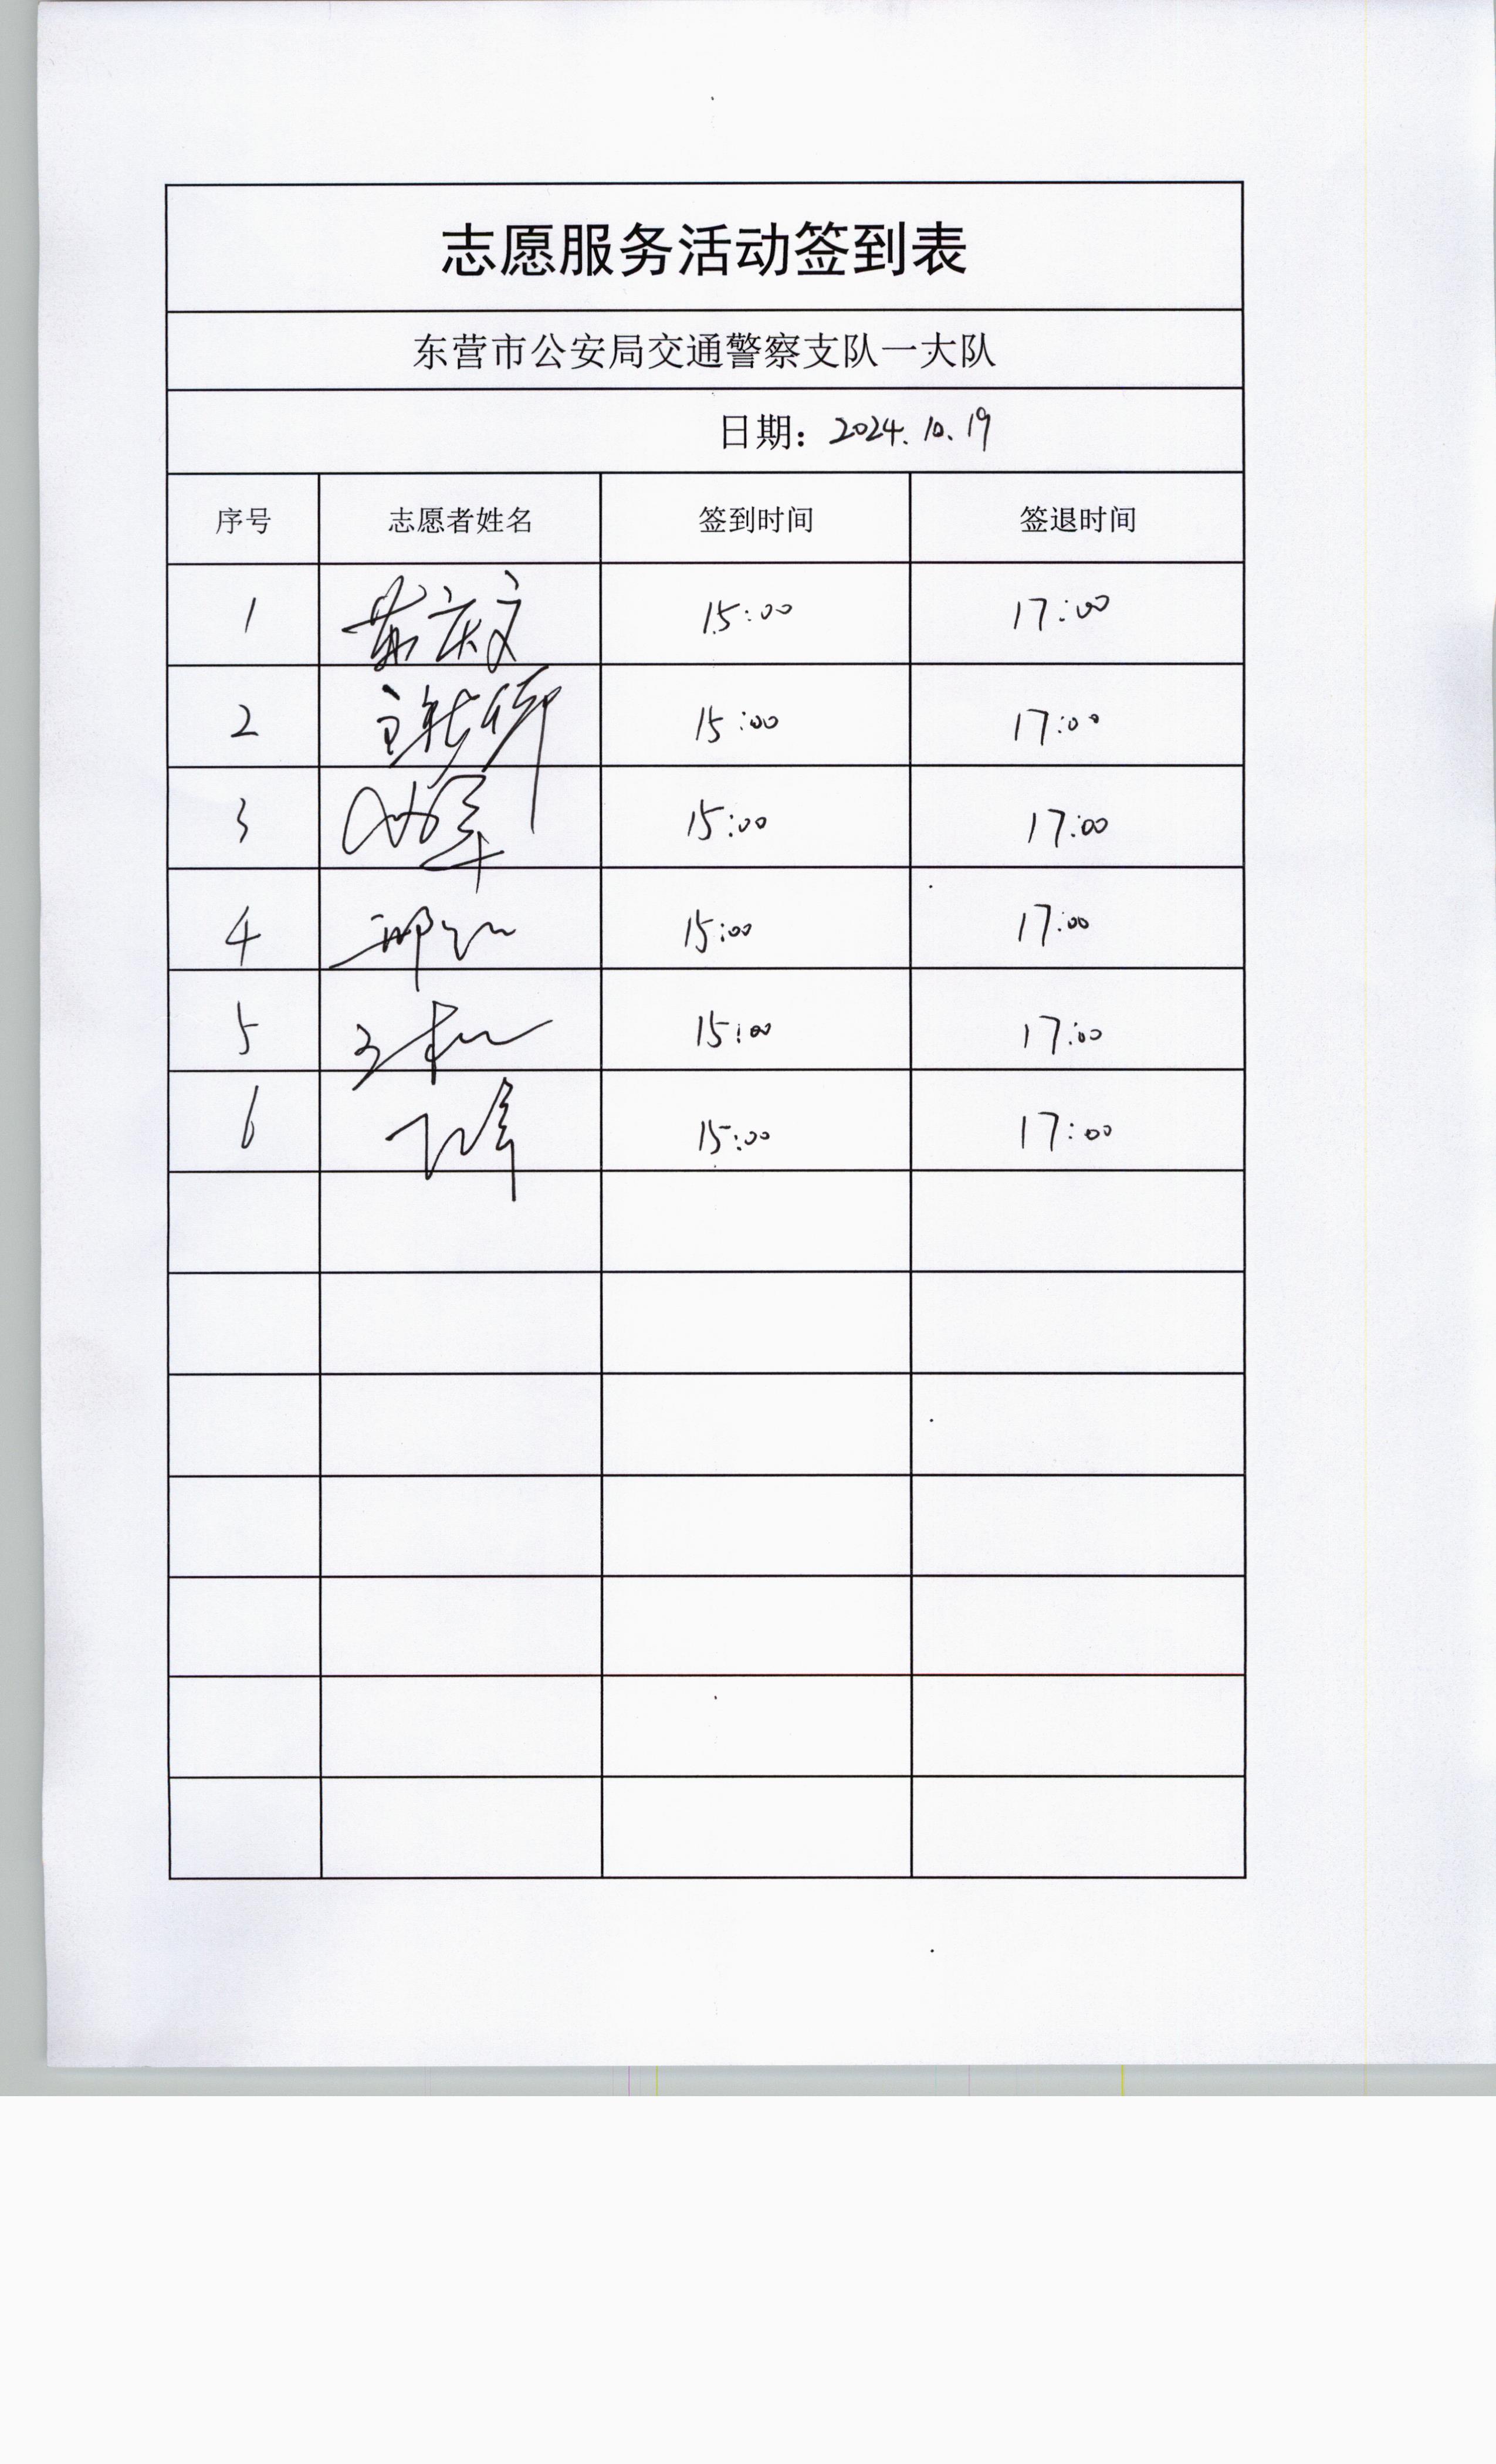 志愿服务活动签到表
东营市公安局交通警察支队一大队
日期：2024.10.19
序号 志愿者姓名 签到时间 签退时间
1 15:00 17:00
2 15:00 17:00
3 15:00 17:00
4 15:00 17:00
5 15:00 17:00
6 15:00 17:00